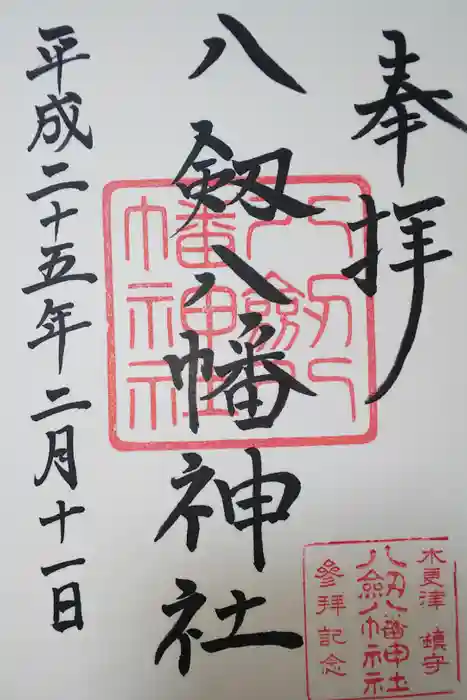 奉拝
八剱八幡神社
平成二十五年二月十一日
八剱八幡神社
木更津 鎮守
八剱八幡神社
參拜記念